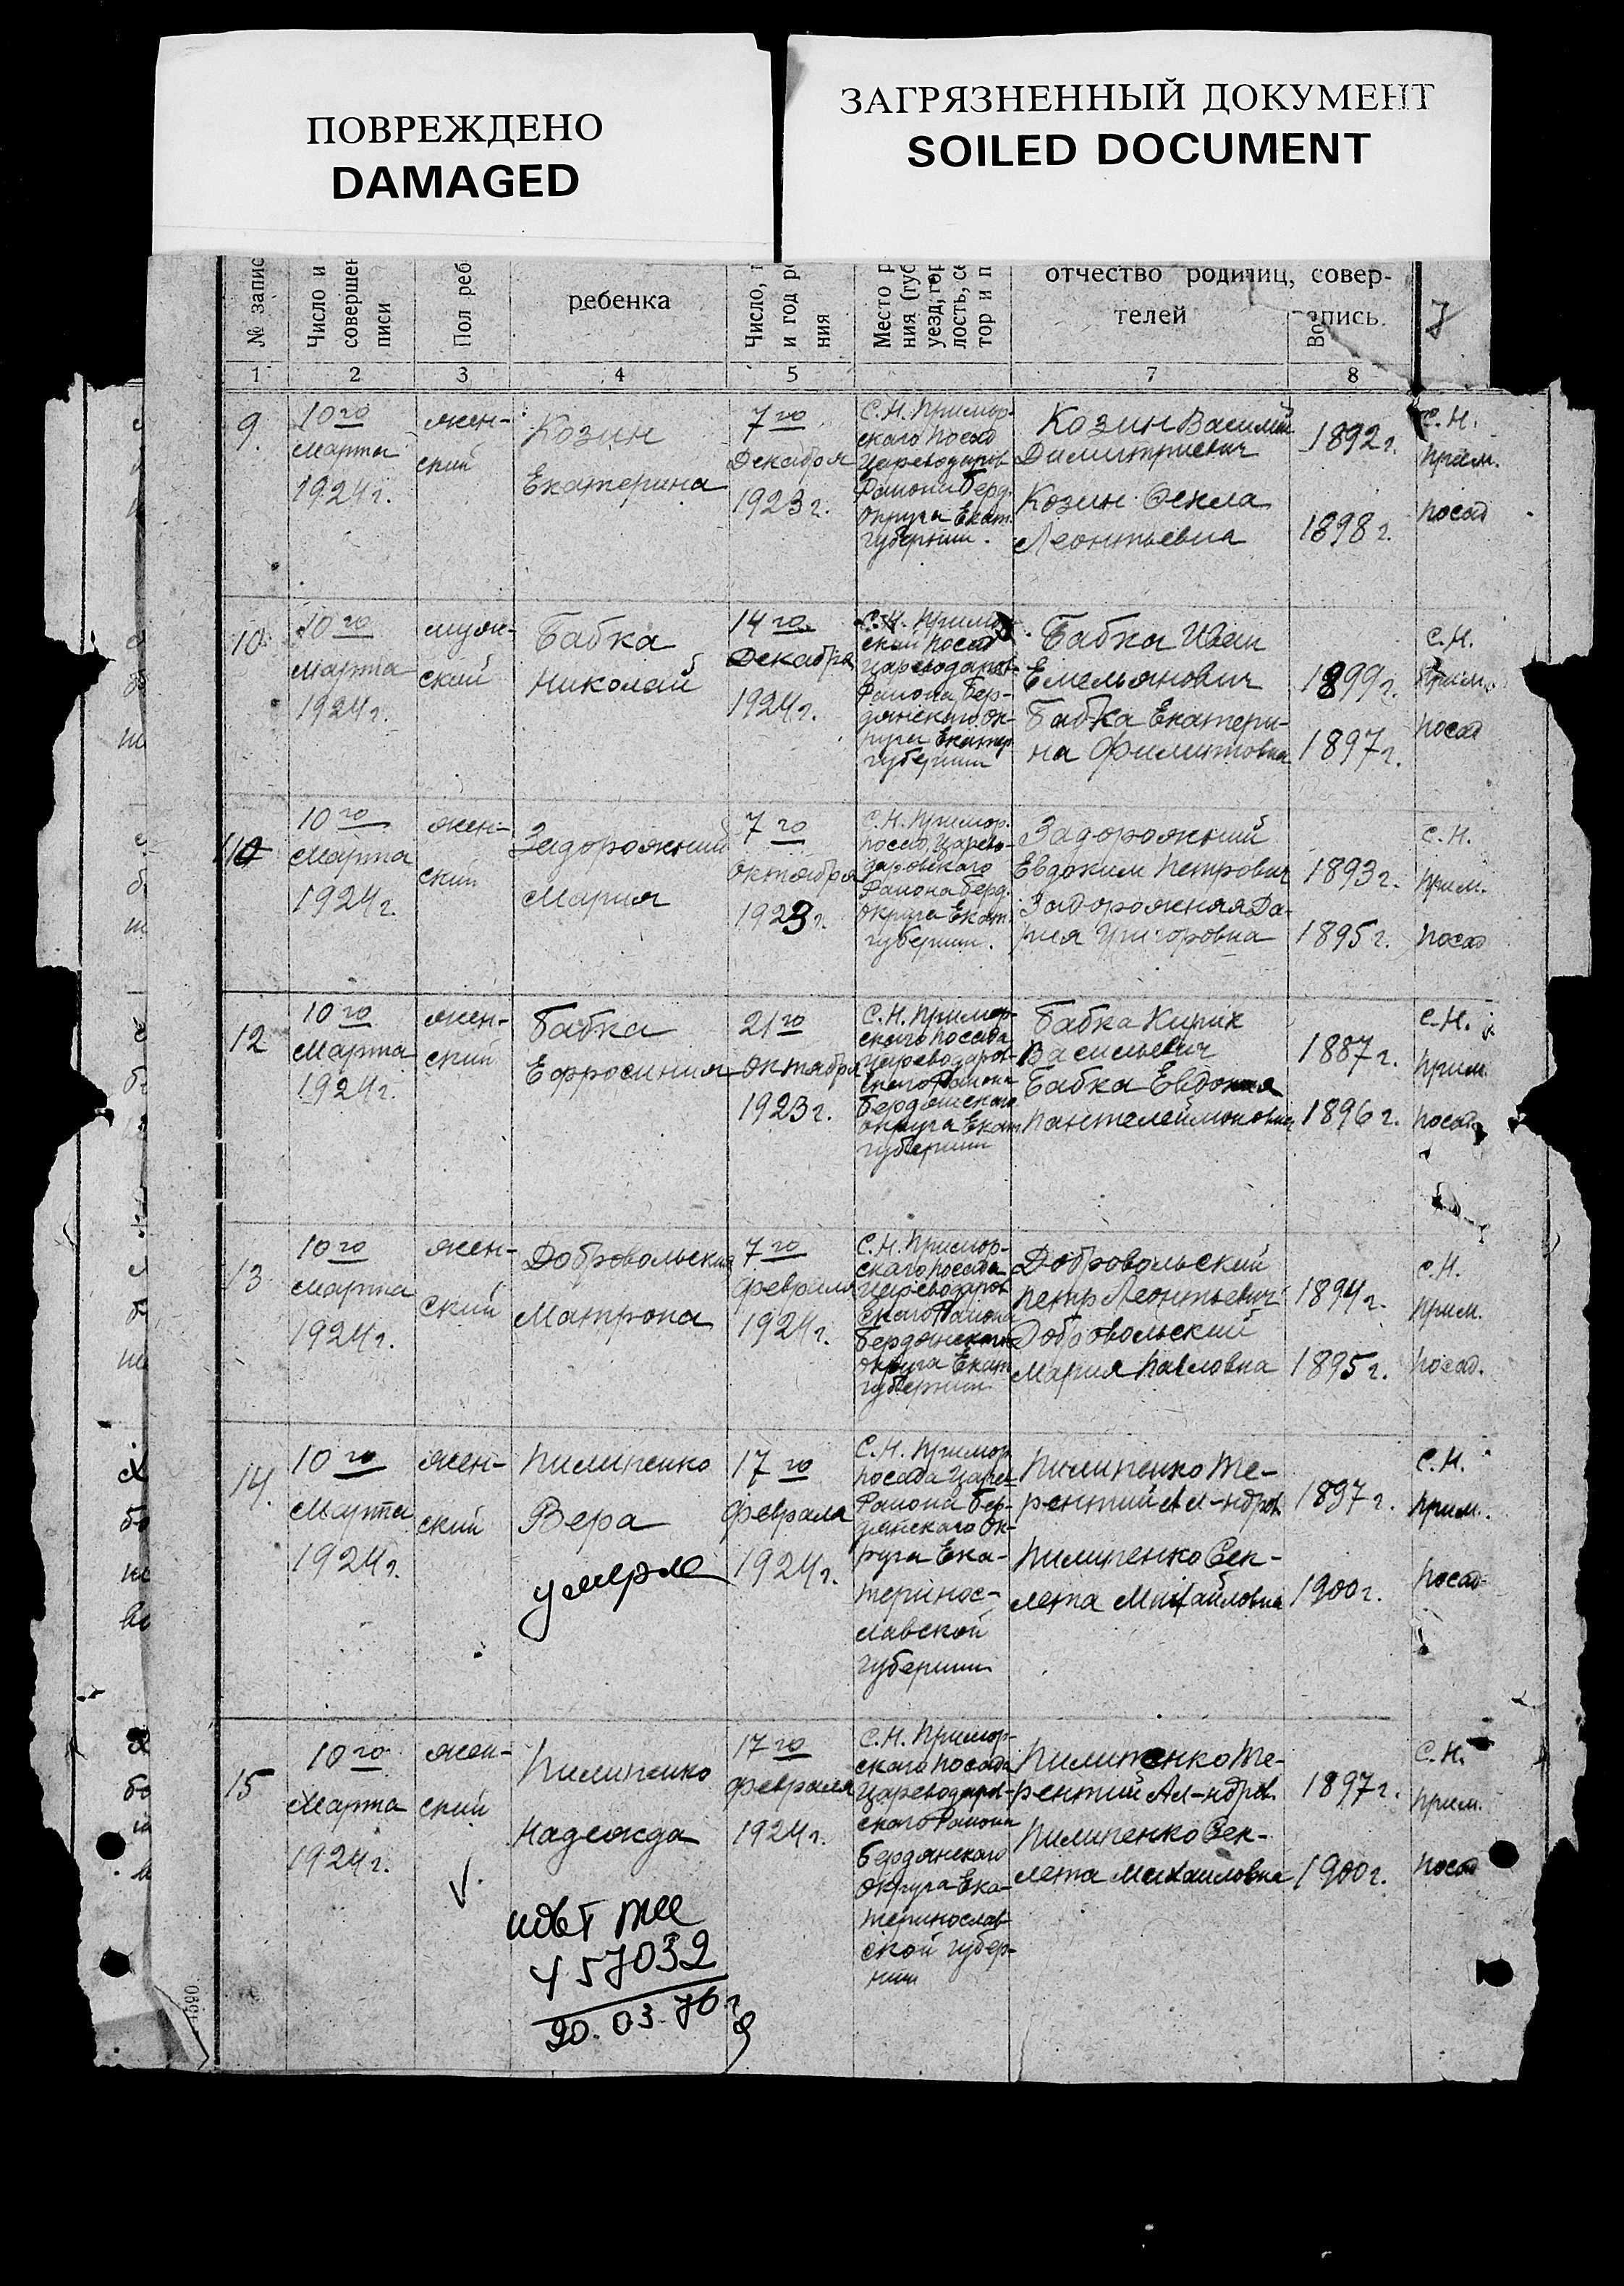 ПОВРЕЖДЕНО
DAMAGED
ЗАГРЯЗНЕННЫЙ ДОКУМЕНТ
SOILED DOCUMENT
№ запис
Число и
совершен
писи
Пол реб
ребенка
Число,
и год ро
ния
Место р
ния (губ
уезд, гор
лость, се
тор и п
отчество родичиц, совер-
телей
апись
Во
7
1 2 3 4 5 7 8
9.
10го
марта
1924г.
жен-
ский
Козин
Екатерина
7го
Декабря
1923г.
С.Н. Примор-
скаго посад
Цареводаров
Района Берд.
округа Екат.
губернии.
Козин Василий
Димитриевич
Козин Фекла
Леонтьевна
1892г.
1898г.
С.Н.
прим.
посад
10
10го
марта
1924г.
муж-
ский
Бабка
Николай
14го
Декабря
1924г.
С.Н. Примо
ский посад
Цареводаров-
Района Бер-
дянскаго ок-
руга Екатер
губернии
Бабка Иван
Емельянович
Бабка Екатери-
на Филиповна
1899г.
1897г.
С.Н.
Прим.
посад
11
10го
марта
1924г.
жен-
ский
Задорожний
Мария
7го
октября
1923г.
С.Н. Примор.
посад, Царево-
даровскаго
Района Берд.
округа Екат.
губернии.
Задорожний
Евдоким Петрович
Задорожная Да-
рия Григоровна
1893г.
1895г.
С.Н.
прим.
посад
12
10го
марта
1924г.
жен-
ский
Бабка
Ефросиния
21го
октября
1923г.
С.Н. Примор-
скаго посада
Цареводаров-
скаго Района
Бердянскаго
округа Екат
губернии
Бабка Кирик
Васильевич
Бабка Евдокия
Пантелеймоновна
1887г.
1896г.
С.Н.
прим
посад
13
10го
марта
1924г.
жен-
ский
Добровольский
Матрона
7го
февраля
1924г.
С.Н. Примор-
скаго посада
Цареводаров
скаго Района
Бердянскаго
округа Екат
губернии
Добровольский
Петр Леонтьевич
Добровольский
Мария Павловна
1894г.
1895г.
С.Н.
прим.
посад.
14.
10го
марта
1924г.
жен-
ский
Пилипенко
Вера
умерла
17го
февраля
1924г.
С.Н. Примор
посада Царев
Района Бер-
дянскаго Ок-
руга Ека-
теринос-
лавской
губернии
Пилипенко Те-
рентий Ал-ндров.
Пилипенко Сек-
лета Михайловна
1897г.
1900г.
С.Н.
прим.
посад
15
10го
марта
1924г.
жен-
ский
Пилипенко
Надежда
17го
февраля
1924г.
С.Н. Примор-
скаго посада
Цареводаров-
скаго Района
Бердянскаго
округа Ека-
теринослав-
ской губер-
нии
Пилипенко Те-
рентий Ал-ндров.
Пилипенко Сек-
лета Михаиловна
1897г.
1900г.
С.Н.
прим.
посад
457032
20.03.76г